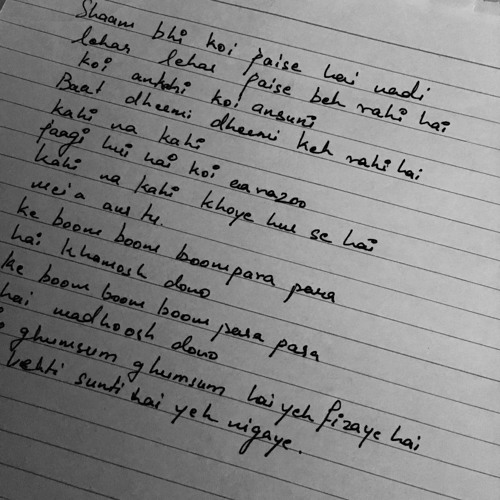 Shaam bhi koi paise hai nadi
lehar lehar paise beh rahi hai
koi ankhi koi ansuni
Baat dheemi dheemi keh rahi hai
kahi na kahi
jaagi hui hai koi aarazoo
kahi na kahi khoye hue se hai
mei'a aur tu.
ke boom boom boompara para
hai khamosh dono
ke boom boom boom para para
hai madhoosh dono
ghumsum ghumsum hai yeh fizaye hai
kehti sunti hai yeh nigaye.